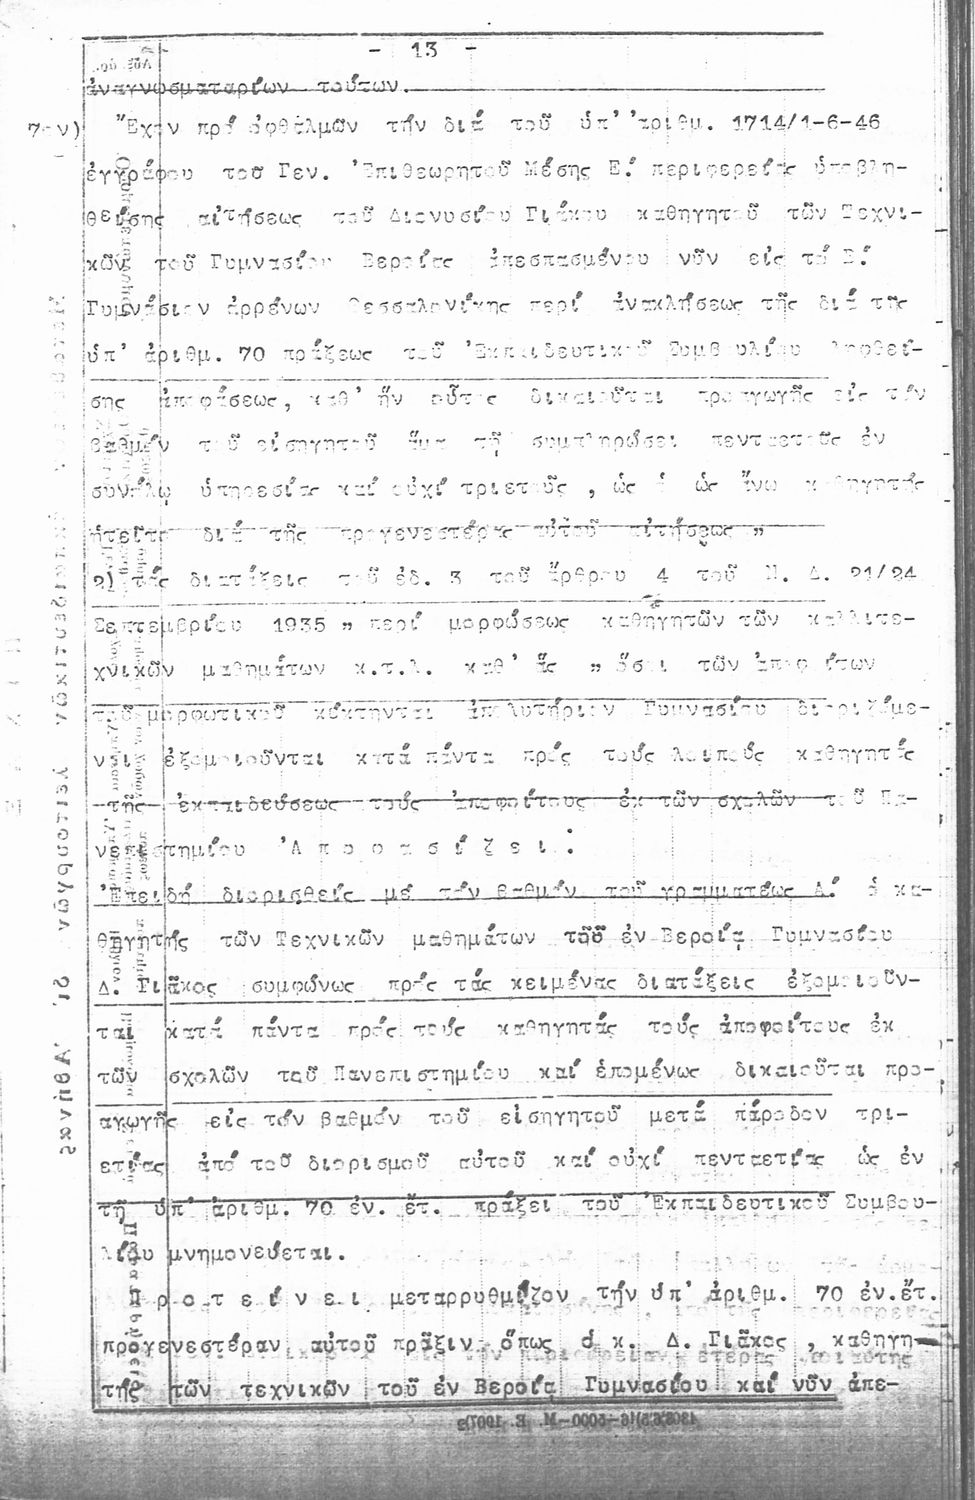 - 13 -
ἀναγνωσματαρίων τούτων.
7ον) Ἔχον πρό ὀφθαλμῶν τήν διά τοῦ ὑπ' ἀριθμ. 1714/1-6-46
ἐγγράφου τοῦ Γεν. Ἐπιθεωρητοῦ Μέσης Ε! περιφερείας ὑποβλη-
θείσης αἰτήσεως τοῦ Διονυσίου Γιάκου καθηγητοῦ τῶν Τεχνι-
κῶν τοῦ Γυμνασίου Βεροίας ἀπεσπασμένου νῦν εἰς τό Β!
Γυμνάσιον ἀρρένων Θεσσαλονίκης περί ἀνακλήσεως τῆς διά τῆς
ὑπ' ἀριθμ. 70 πράξεως τοῦ Ἐκπαιδευτικοῦ Συμβουλίου ληφθεί-
σης ἀποφάσεως, καθ' ἥν οὗτος δικαιοῦται προαγωγῆς εἰς τόν
βαθμόν τοῦ εἰσηγητοῦ ἅμα τῇ συμπληρώσει πενταετοῦς ἐν
συνόλῳ ὑπηρεσίας καί οὐχί τριετοῦς , ὡς ὁ ὡς ἄνω καθηγητής
ᾐτεῖτο διά τῆς προγενεστέρας αὐτοῦ αἰτήσεως „
2) τάς διατάξεις τοῦ ἐδ. 3 τοῦ ἄρθρου 4 τοῦ Ν. Δ. 21/24
Σεπτεμβρίου 1935 „ περί μορφώσεως καθηγητῶν τῶν καλλιτε-
χνικῶν μαθημάτων κ.τ.λ. καθ' ἅς „ ὅσοι τῶν ἀποφοίτων
τοῦ μορφωτικοῦ κέκτηνται ἀπολυτήριον Γυμνασίου διοριζόμε-
νοι ἐξομοιοῦνται κατά πάντα πρός τούς λοιπούς καθηγητάς
τῆς ἐκπαιδεύσεως τούς ἀποφοίτους ἐκ τῶν σχολῶν τοῦ Πα-
νεπιστημίου Ἀ π ο φ α σ ί ζ ε ι :
Ἐπειδή διορισθείς μέ τόν βαθμόν τοῦ γραμματέως Α! ὁ κα-
θηγητής τῶν Τεχνικῶν μαθημάτων τοῦ ἐν Βεροίᾳ Γυμνασίου
Δ. Γιᾶκος συμφώνως πρός τάς κειμένας διατάξεις ἐξομοιοῦν-
ται κατά πάντα πρός τούς καθηγητάς τούς ἀποφοίτους ἐκ
τῶν σχολῶν τοῦ Πανεπιστημίου καί ἑπομένως δικαιοῦται προ-
αγωγῆς εἰς τόν βαθμόν τοῦ εἰσηγητοῦ μετά πάροδον τρι-
ετίας ἀπό τοῦ διορισμοῦ αὐτοῦ καί οὐχί πενταετίας ὡς ἐν
τῇ ὑπ' ἀριθμ. 70 ἐν. ἔτ. πράξει τοῦ Ἐκπαιδευτικοῦ Συμβου-
λίου μνημονεύεται.
Π ρ ο τ ε ί ν ε ι μεταρρυθμίζον τήν ὑπ' ἀριθμ. 70 ἐν.ἔτ.
προγενεστέραν αὐτοῦ πρᾶξιν ὅπως ὁ κ. Δ. Γιᾶκος , καθηγη-
τής τῶν τεχνικῶν τοῦ ἐν Βεροίᾳ Γυμνασίου καί νῦν ἀπε-